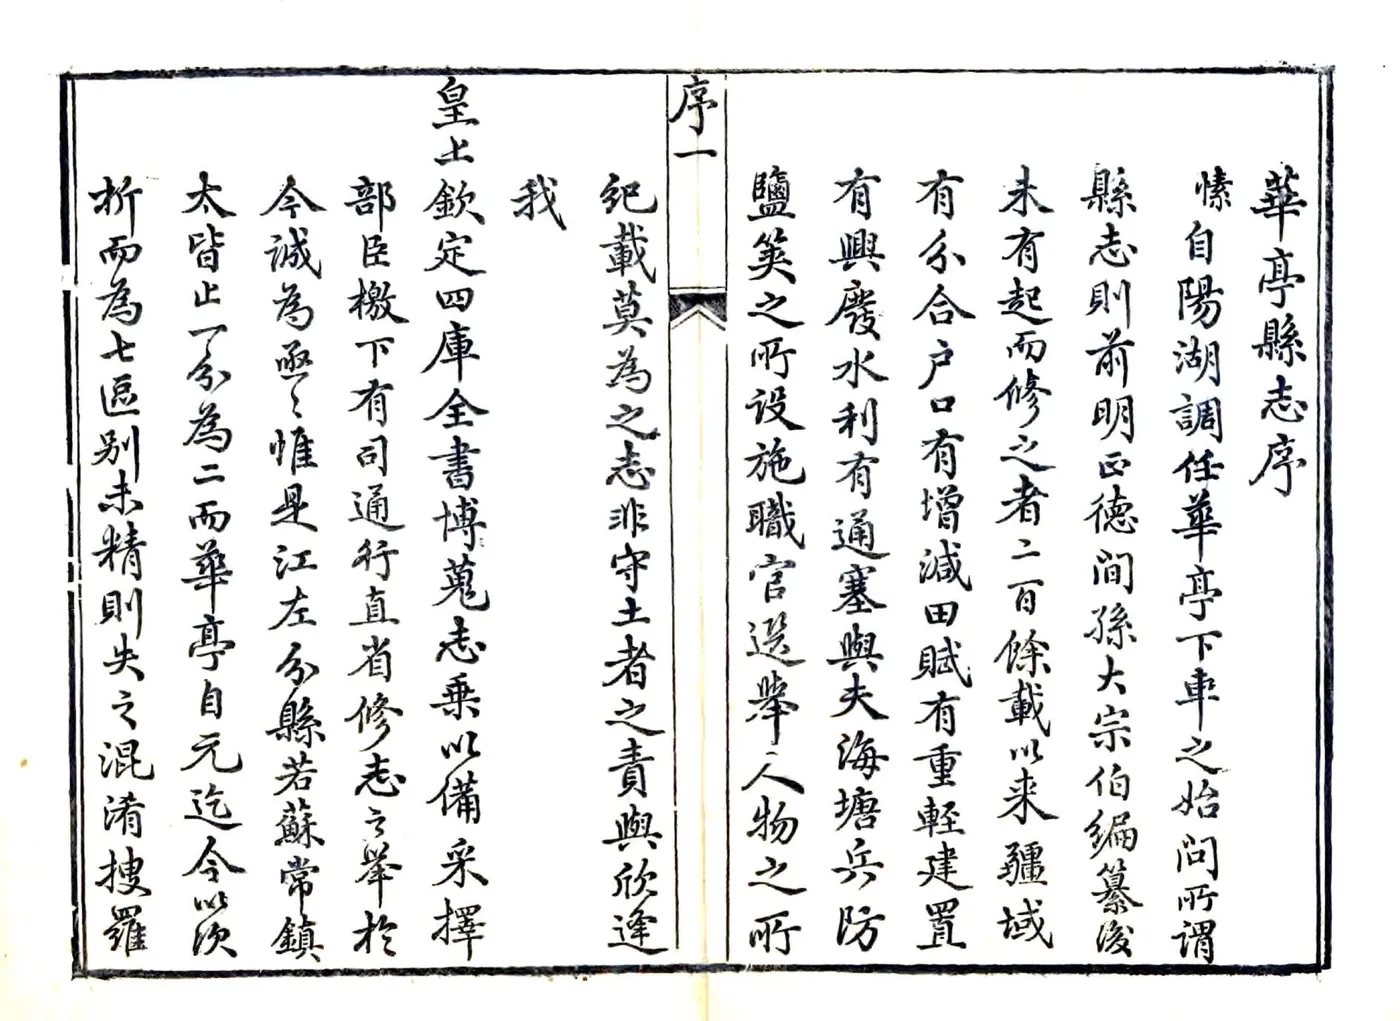 華亭縣志序
愫自陽湖調任華亭下車之始問所謂
縣志則前明正德間孫大宗伯編纂後
未有起而修之者二百餘載以來疆域
有分合户口有增減田賦有重輕建置
有興廢水利有通塞與夫海塘兵防
鹽筴之所設施職官選舉人物之所
序一
紀載莫為之志非守土者之責與欣逢
我
皇上欽定四庫全書博蒐志乘以備采擇
部臣檄下有司通行直省修志之舉於
今誠為亟亟惟是江左分縣若蘇常鎮
太皆止一分為二而華亭自元迄今以次
析而為七區别未精則失之混淆搜羅